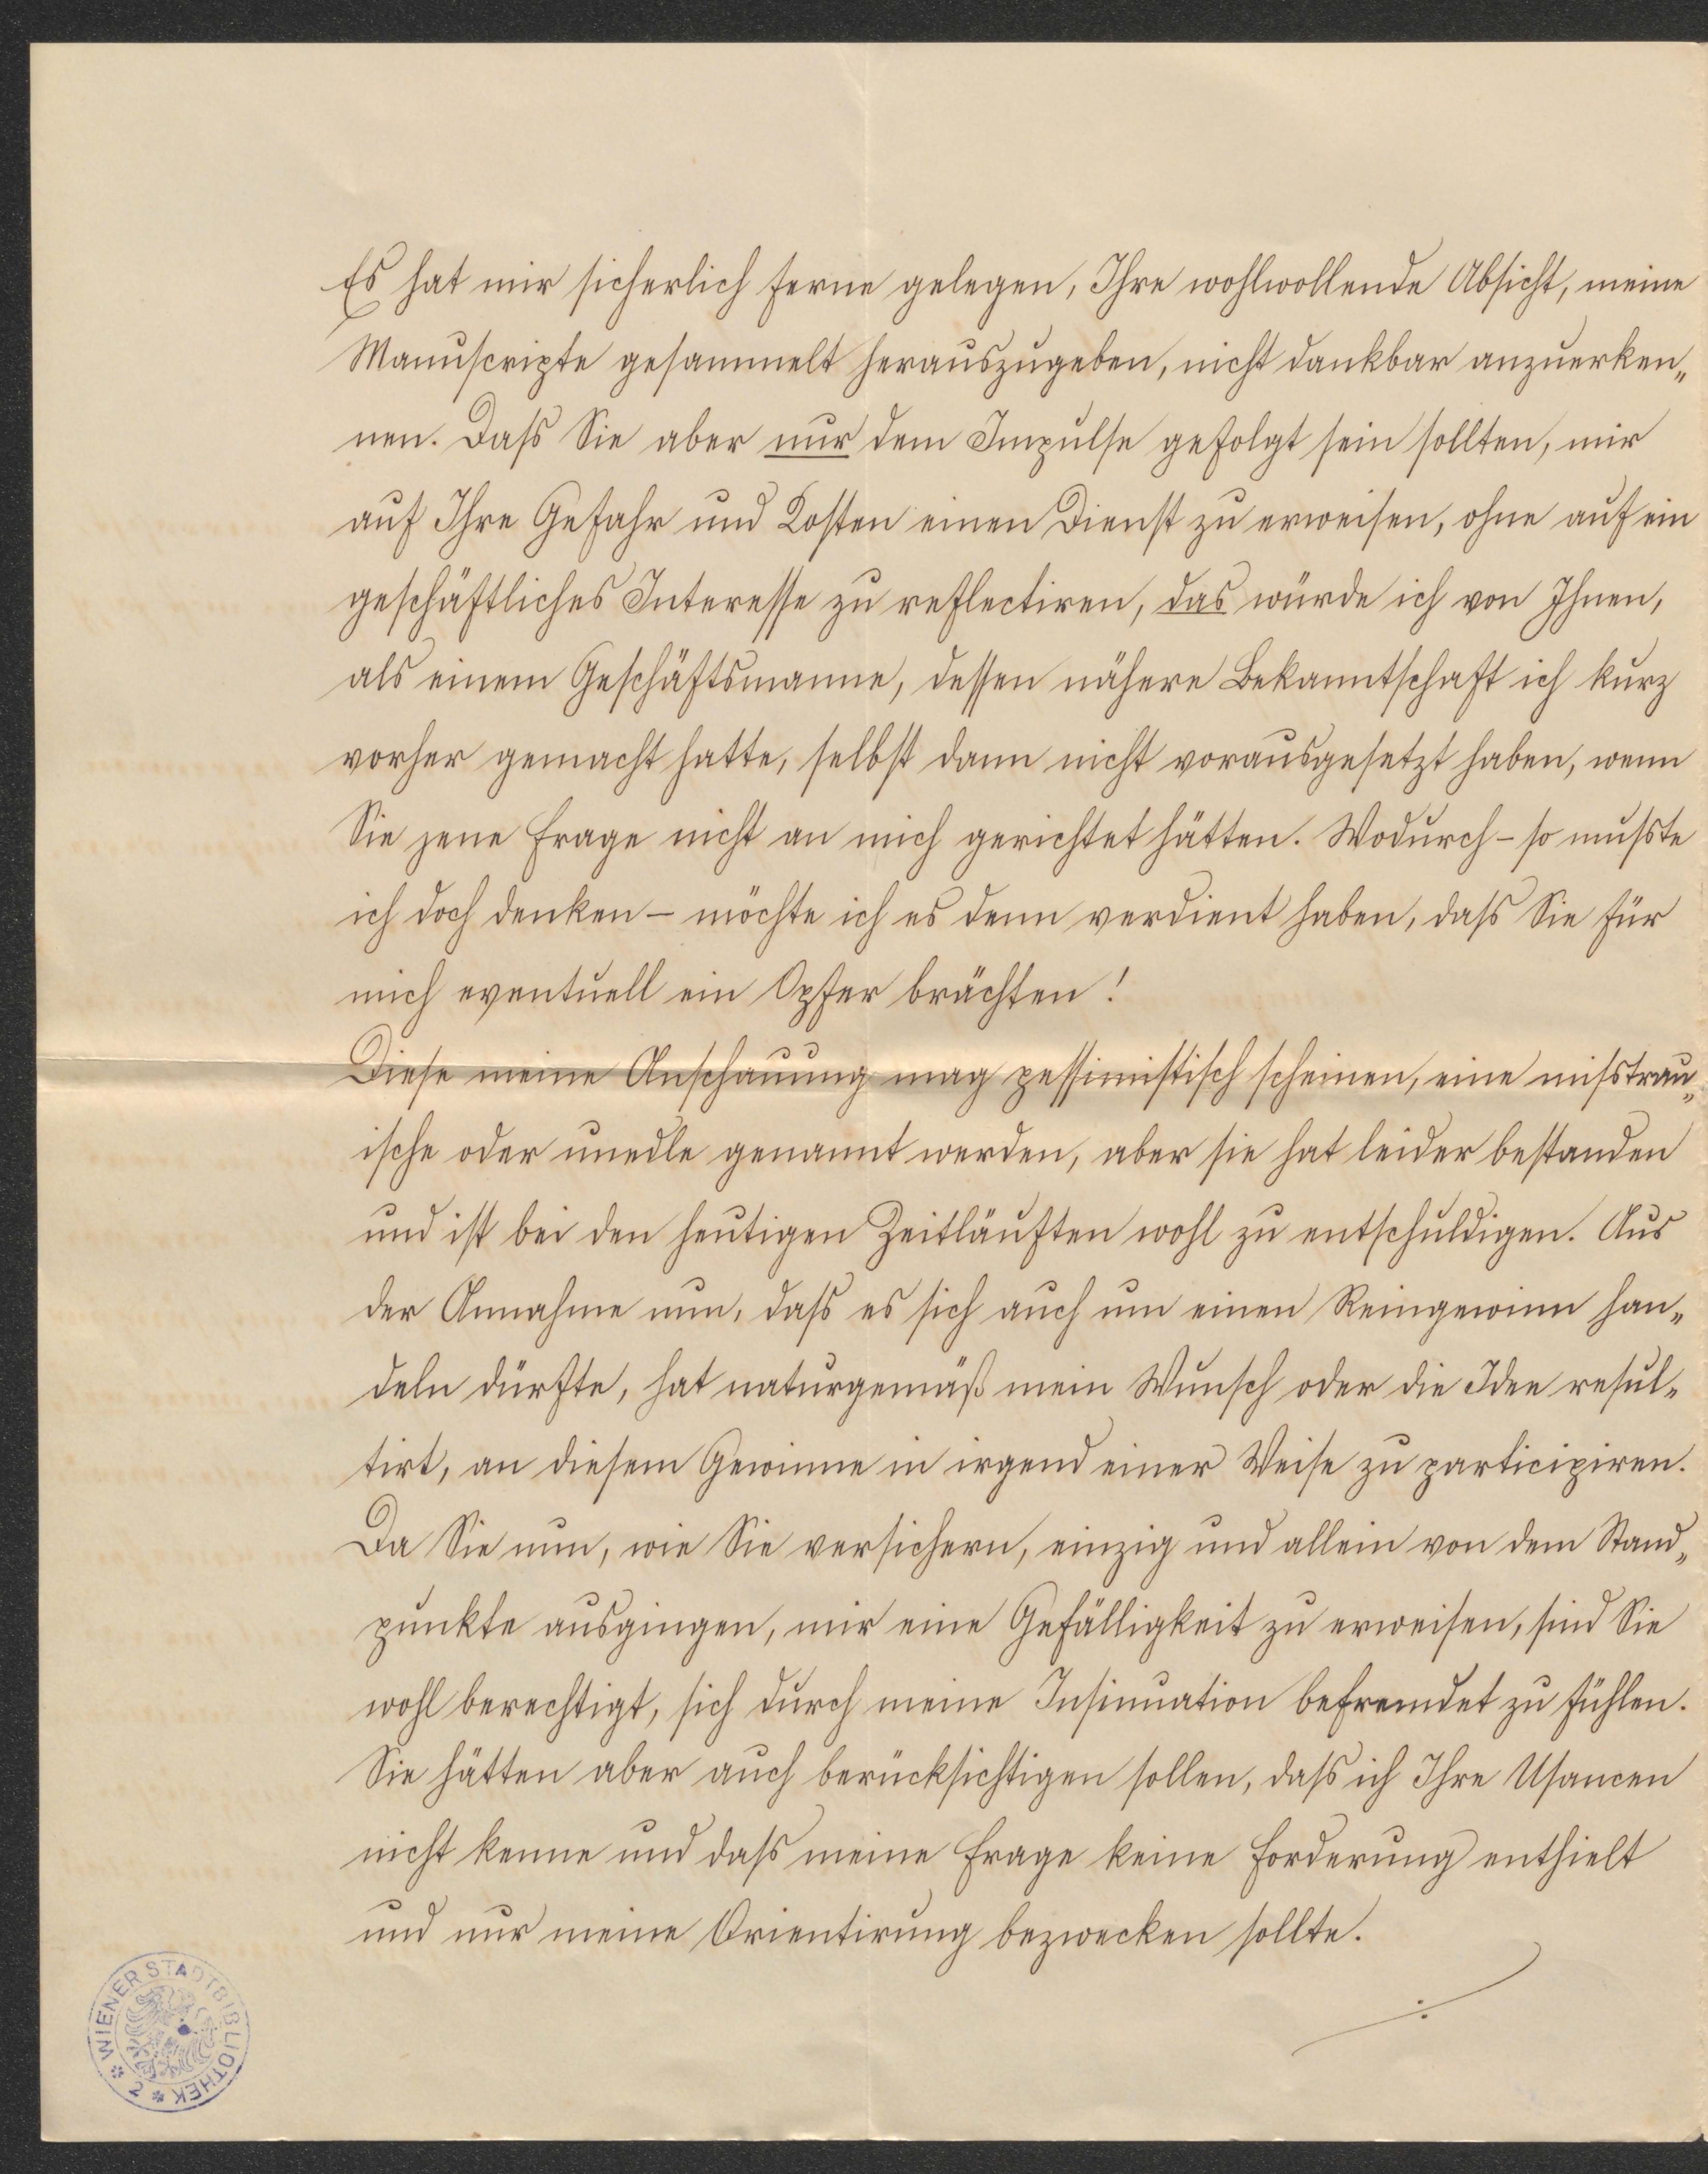 Es hat mir sicherlich ferne gelegen, Ihre wohlwollende Absicht, meine
Manuscripte gesammelt herauszugeben, nicht dankbar anzuerken„
nen. Daſs Sie aber nur dem Impulse gefolgt sein sollten, mir
auf Ihre Gefahr und Kosten einen Dienst zu erweisen, ohne auf ein
geschäftliches Interesse zu reflectiren, das würde ich von Ihnen,
als einem Geschäftsmanne, dessen nähere Bekanntschaft ich kurz
vorher gemacht hatte, selbst dann nicht vorausgesetzt haben, wenn
Sie jene Frage nicht an mich gerichtet hätten. Wodurch – so muſste
ich doch denken – möchte ich es denn verdient haben, daſs Sie für
mich eventuell ein Opfer brächten!
Diese meine Anschauung mag pessimistisch scheinen, eine miſstrau„
ische oder unedle genannt werden, aber sie hat leider bestanden
und ist bei den heutigen Zeitläuften wohl zu entschuldigen. Aus
der Annahme nun, daſs es sich auch um einen Reingewinn han„
deln dürfte, hat naturgemäß mein Wunsch oder die Idee resul„
tirt, an diesem Gewinne in irgend einer Weise zu participiren.
Da Sie nun, wie Sie versichern, einzig und allein von dem Stand„
punkte ausgingen, mir eine Gefälligkeit zu erweisen, sind Sie
wohl berechtigt, sich durch meine Insinuation befremdet zu fühlen.
Sie hätten aber auch berücksichtigen sollen, daſs ich Ihre Usancen
nicht kenne und daſs meine Frage keine Forderung enthielt
und nur meine Orientirung bezwecken sollte.
WIENER STADTBIBLIOTHEK * 2 *